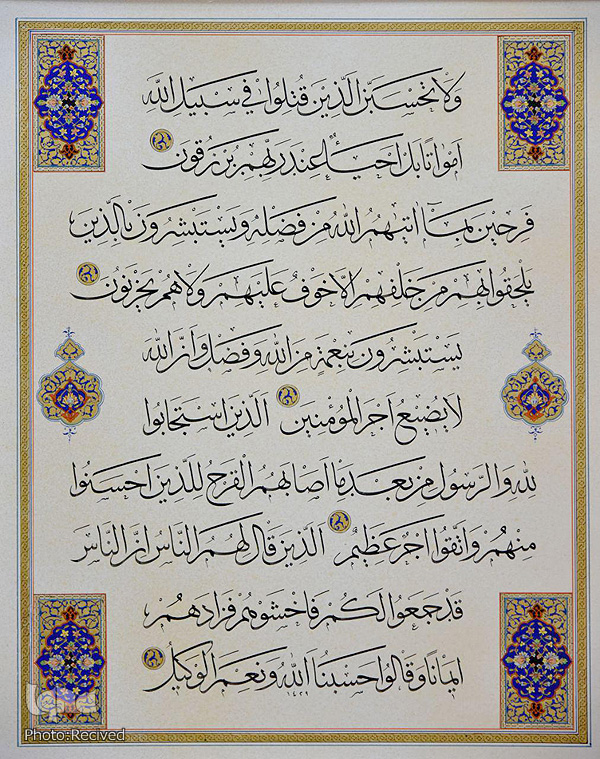 وَلَا تَحْسَبَنَّ الَّذِينَ قُتِلُوا فِي سَبِيلِ اللّٰهِ
اَمْوَاتًا بَلْ اَحْيَاءٌ عِنْدَ رَبِّهِمْ يُرْزَقُونَ
فَرِحِينَ بِمَا اٰتٰيهُمُ اللّٰهُ مِنْ فَضْلِهِ وَيَسْتَبْشِرُونَ بِالَّذِينَ
لَمْ يَلْحَقُوا بِهِمْ مِنْ خَلْفِهِمْ اَلَّا خَوْفٌ عَلَيْهِمْ وَلَا هُمْ يَحْزَنُونَ
يَسْتَبْشِرُونَ بِنِعْمَةٍ مِنَ اللّٰهِ وَفَضْلٍ وَاَنَّ اللّٰهَ
لَا يُضِيعُ اَجْرَ الْمُؤْمِنِينَ اَلَّذِينَ اسْتَجَابُوا
لِلّٰهِ وَالرَّسُولِ مِنْ بَعْدِ مَا اَصَابَهُمُ الْقَرْحُ لِلَّذِينَ اَحْسَنُوا
مِنْهُمْ وَاتَّقَوْا اَجْرٌ عَظِيمٌ اَلَّذِينَ قَالَ لَهُمُ النَّاسُ اِنَّ النَّاسَ
قَدْ جَمَعُوا لَكُمْ فَاخْشَوْهُمْ فَزَادَهُمْ
اِيمَانًا وَقَالُوا حَسْبُنَا اللّٰهُ وَنِعْمَ الْوَكِيلُ
١٤٢٩
Iqna
Photo:Recived